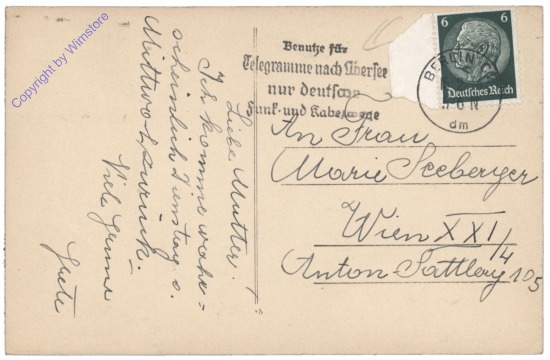 Copyright by Wimstore
Liebe Mutter.
Ich komme wahr-
scheinlich Dienstag o.
Mittwoch zurück.
Viele Grüsse
Grete
Benutze für
Telegramme nach Übersee
nur deutsche
Funk- und Kabelwege
6 6
Deutsches Reich
BERLIN
dm
An Frau
Marie Seeberger
Wien XXI/4
Anton Sattlerg 105